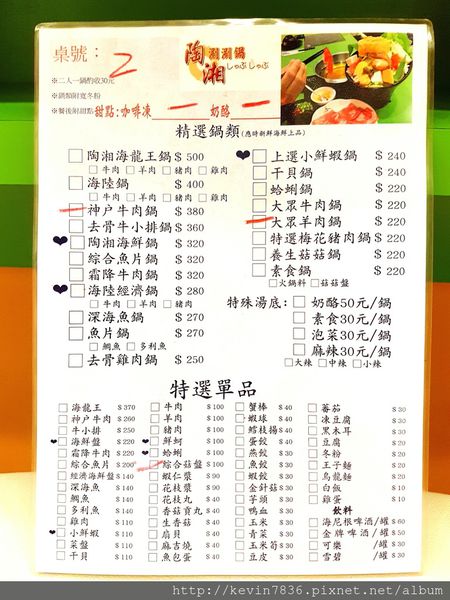 桌號： 2
陶湘 涮涮鍋
しゃぶしゃぶ
※二人一鍋酌收30元
※鍋類附寬冬粉
※餐後附甜點 甜點：咖啡凍 一 奶酪 一
精選鍋類(應時新鮮海鮮上品)
□陶湘海龍王鍋 $ 500
□牛肉 □羊肉 □豬肉 □雞肉
□海陸鍋 $ 400
□牛肉 □羊肉 □豬肉 □雞肉
□神戶牛肉鍋 $ 380
□去骨牛小排鍋 $ 360
□陶湘海鮮鍋 $ 320
□綜合魚片鍋 $ 320
□霜降牛肉鍋 $ 320
□海陸經濟鍋 $ 280
□牛肉 □羊肉 □豬肉
□深海魚鍋 $ 270
□魚片鍋 $ 270
□鯛魚 □多利魚
□去骨雞肉鍋 $ 250
□上選小鮮蝦鍋 $ 240
□干貝鍋 $ 240
□蛤蜊鍋 $ 220
□大眾牛肉鍋 $ 220
□大眾羊肉鍋 $ 220
□特選梅花豬肉鍋 $ 220
□養生菇菇鍋 $ 220
□素食鍋 $ 220
□火鍋料 □菇菇盤
特殊湯底：□奶酪50元/鍋
□素食30元/鍋
□泡菜30元/鍋
□麻辣30元/鍋
□大辣 □中辣 □小辣
特選單品
□海龍王 $ 370
□神戶牛肉 $ 260
□牛小排 $ 250
□海鮮盤 $ 220
□霜降牛肉 $ 220
□綜合魚片 $ 200
□經濟海鮮盤 $ 140
□深海魚 $ 140
□鯛魚 $ 140
□多利魚 $ 140
□雞肉 $ 110
□小鮮蝦 $ 110
□菜盤 $ 110
□干貝 $ 110
□牛肉 $ 100
□羊肉 $ 100
□豬肉 $ 100
□鮮蚵 $ 100
□蛤蜊 $ 100
□綜合菇盤 $ 100
□蝦仁漿 $ 80
□花枝漿 $ 80
□花枝丸 $ 50
□香菇貢丸 $ 50
□生香菇 $ 50
□扇貝 $ 50
□麻吉燒 $ 50
□魚包蛋 $ 50
□蟹棒 $ 40
□蝦球 $ 40
□鱈枝揚 $ 40
□蛋餃 $ 40
□燕餃 $ 30
□魚餃 $ 30
□蝦餃 $ 30
□金針菇 $ 30
□芋頭 $ 30
□鴨血 $ 30
□玉米 $ 30
□青菜 $ 30
□玉米筍 $ 30
□豆皮 $ 30
□蕃茄 $ 30
□凍豆腐 $ 30
□黑木耳 $ 30
□豆腐 $ 20
□冬粉 $ 20
□王子麵 $ 20
□烏龍麵 $ 20
□白飯 $ 10
□雞蛋 $ 10
飲料
□海尼根啤酒/罐 $ 60
□金牌啤酒/罐 $ 50
□可樂 /罐 $ 30
□雪碧 /罐 $ 30
http://kevin7836.pixnet.net/album